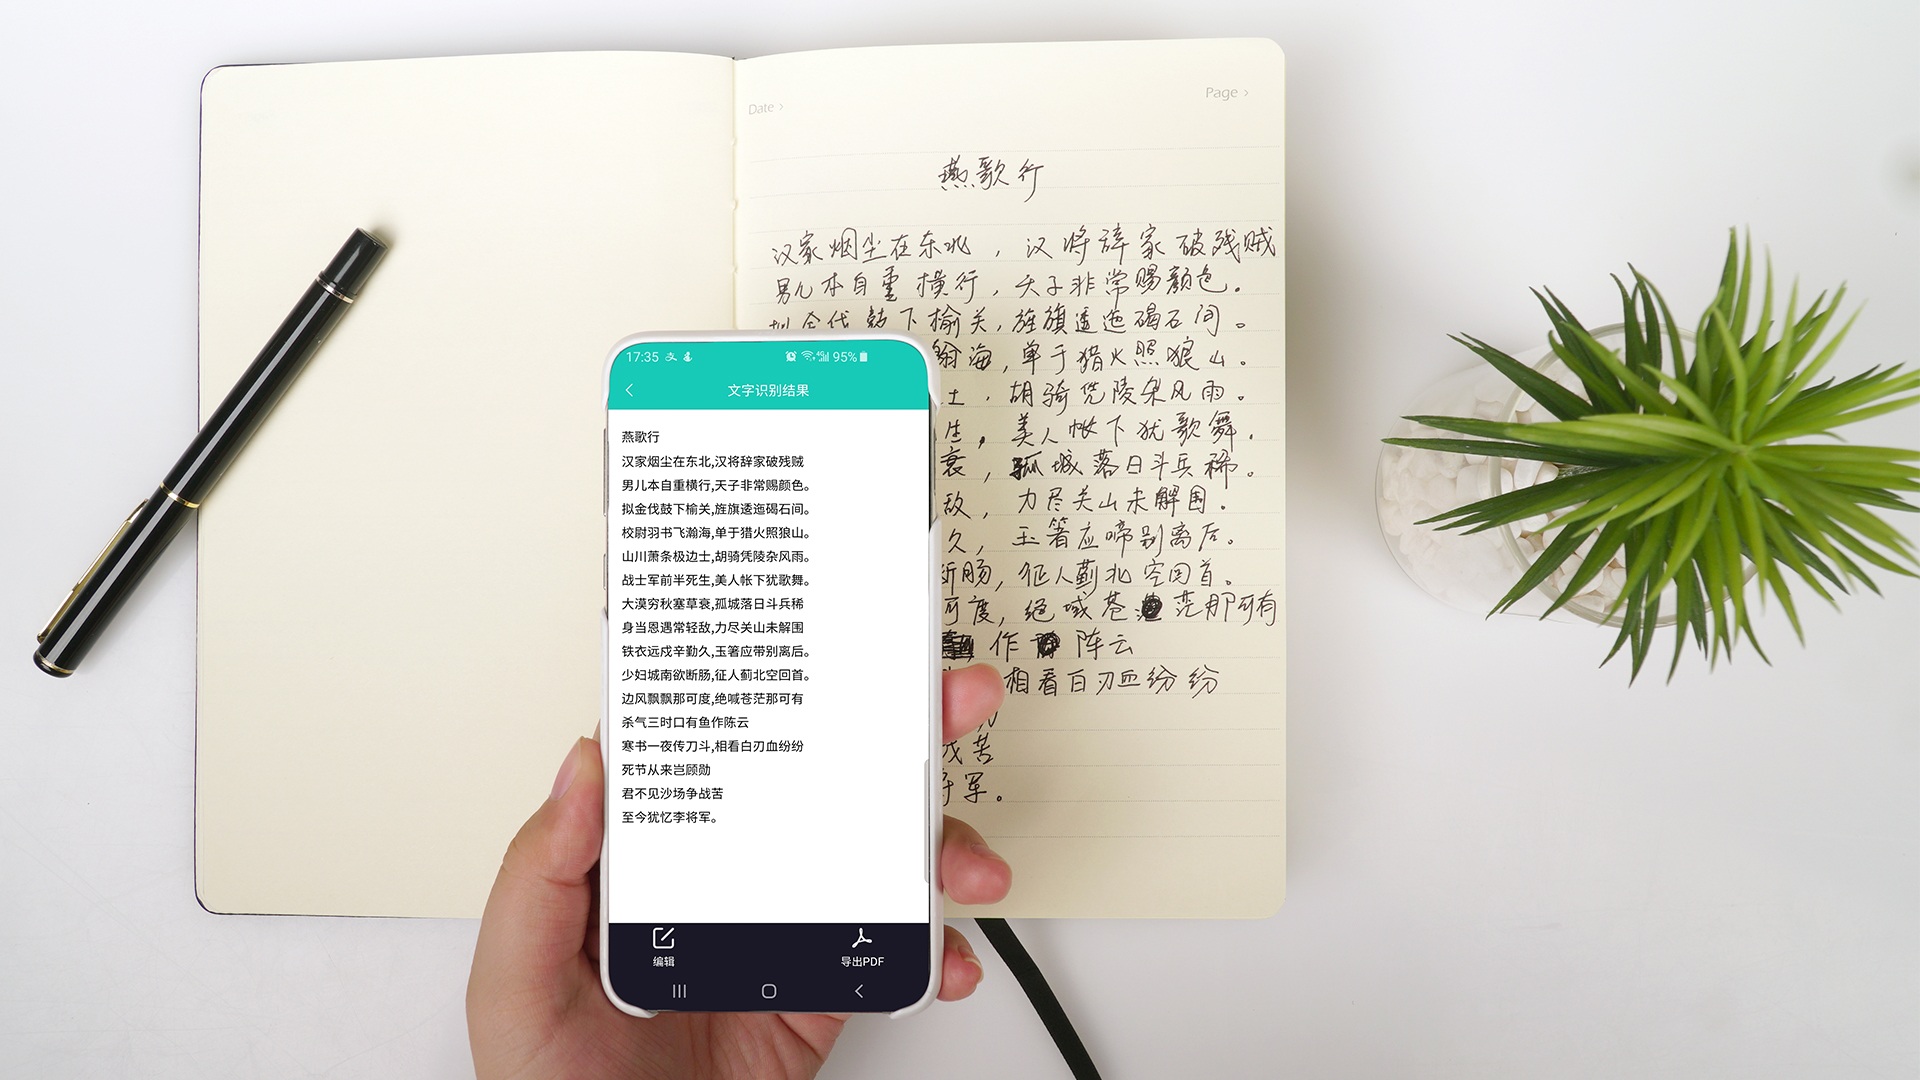 Date ›
Page ›
燕歌行
汉家烟尘在东北，汉将辞家破残贼
男儿本自重横行，天子非常赐颜色。
下榆关，旌旗逶迤碣石间。
瀚海，单于猎火照狼山。
土，胡骑凭陵杂风雨。
生，美人帐下犹歌舞。
衰，孤城落日斗兵稀。
敌，力尽关山未解围。
久，玉箸应啼别离后。
断肠，征人蓟北空回首。
可度，绝域苍茫那可有
作 陈云
相看白刃血纷纷
苦
军。
17:35 95%
文字识别结果
燕歌行
汉家烟尘在东北,汉将辞家破残贼
男儿本自重横行,天子非常赐颜色。
拟金伐鼓下榆关,旌旗逶迤碣石间。
校尉羽书飞瀚海,单于猎火照狼山。
山川萧条极边士,胡骑凭陵杂风雨。
战士军前半死生,美人帐下犹歌舞。
大漠穷秋塞草衰,孤城落日斗兵稀
身当恩遇常轻敌,力尽关山未解围
铁衣远戍辛勤久,玉箸应带别离后。
少妇城南欲断肠,征人蓟北空回首。
边风飘飘那可度,绝喊苍茫那可有
杀气三时口有鱼作陈云
寒书一夜传刀斗,相看白刃血纷纷
死节从来岂顾勋
君不见沙场争战苦
至今犹忆李将军。
编辑
导出PDF